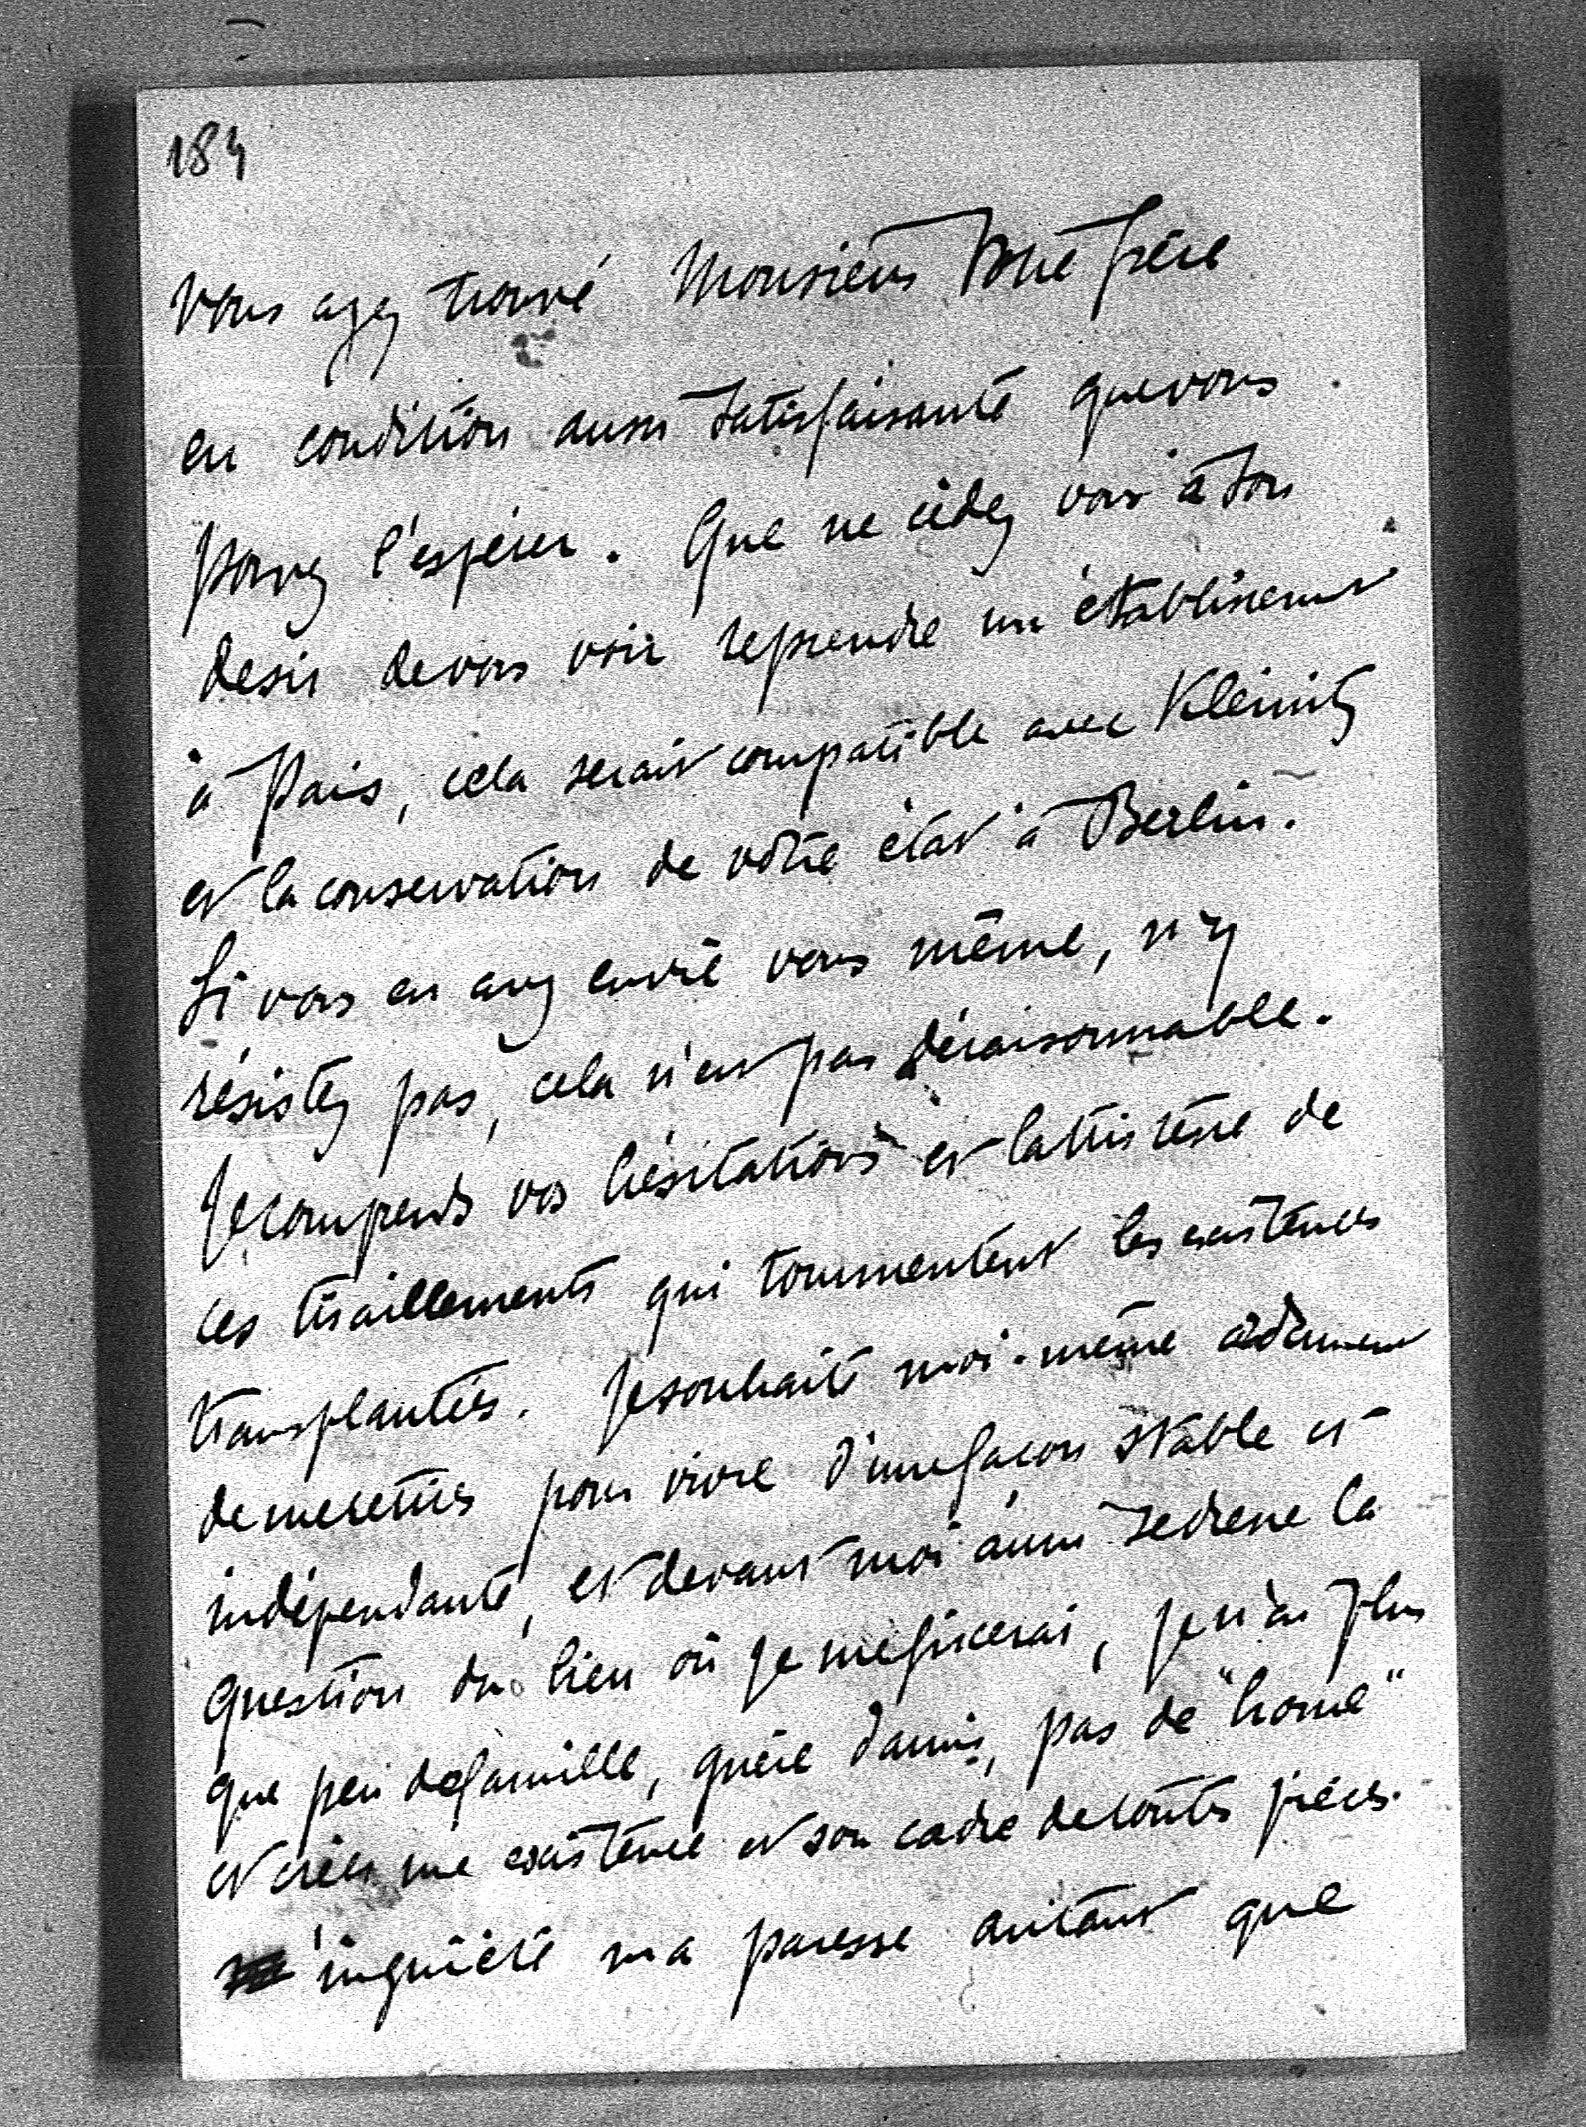 184
vous ayez trouvé Monsieur votre frère
en condition aussi satisfaisante que vous
pouvez l'espérer. Que ne cédez vous à son
desir de vous voir reprendre un établissement
à Paris, cela serait compatible avec Kleinitz
et la conservation de votre état à Berlin.
Si vous en avez envie vous même, n'y
résistez pas, cela n'est pas déraisonnable.
Je comprends vos hésitations et la tristesse de
ces tiraillements qui tourmentent les existences
transplantées. Je souhaite moi-même ardemment
de me retirer pour vivre d'une façon stable et
indépendante, et devant moi aussi se dresse la
question du lieu où je me fixerai, je n'ai plus
que peu de famille, guère d'amis, pas de "home"
et créer une existence et son cadre de toutes pièces
inquiète ma paresse autant que